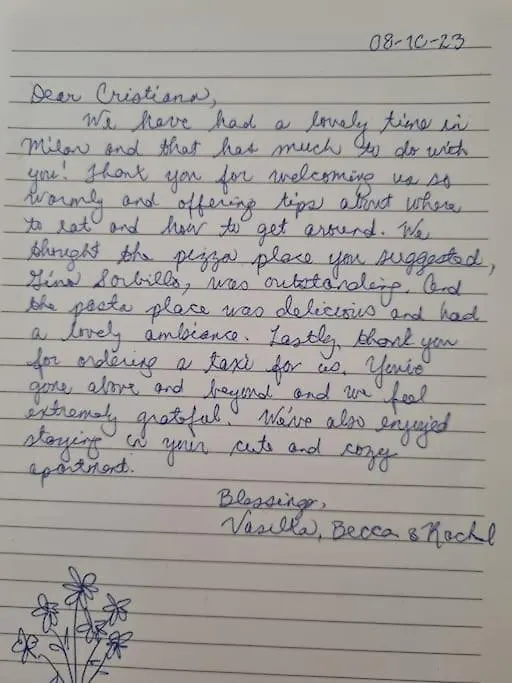 08-10-23
Dear Cristiann,
We have had a lovely time in
Milan and that has much to do with
you! Thank you for welcoming us so
warmly and offering tips about where
to eat and how to get around. We
thought the pizza place you suggested,
Gino Sorbillo, was outstanding. And
the pasta place was delicious and had
a lovely ambiance. Lastly, thank you
for ordering a taxi for us. You've
gone above and beyond and we feel
extremely grateful. We've also enjoyed
staying in your cute and cozy
apartment.
Blessings,
Vasilla, Becca & Rachel